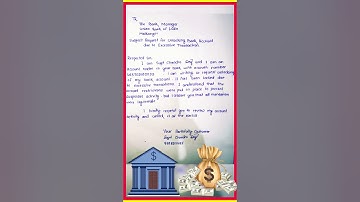 To
The Bank Manager
Union Bank of India
Subject: Request for Unlocking Bank Account
due to Excessive Transaction
Respected Sir,
I am Sujit Chandra Dey and I am an
account holder in your bank with account number
I am writing to request unlocking
of my bank account. It has been locked due
to excessive transactions. I understand that the
account restrictions were put in place to prevent
suspicious activity but I assure you that all transactions
were legitimate
I kindly request you to review my account
activity and unlock it at the earliest
Your faithfully Customer
Sujit Chandra Dey
$
$